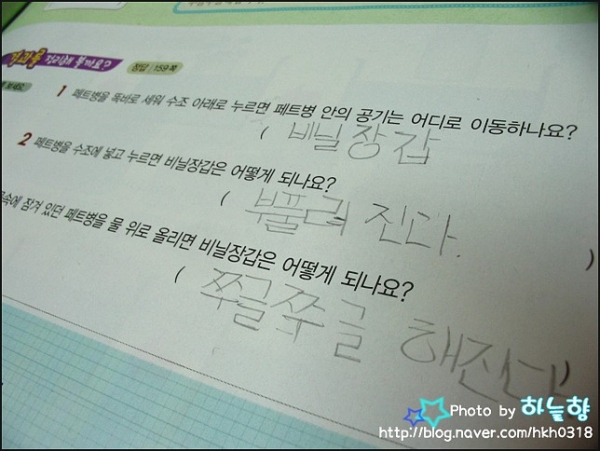 결과를 정리해 볼까요?
정답 159쪽
보세요.
1 페트병을 똑바로 세워 수조 아래로 누르면 페트병 안의 공기는 어디로 이동하나요?
( 비닐장갑
2 페트병을 수조에 넣고 누르면 비닐장갑은 어떻게 되나요?
( 부풀려 진다. )
속에 잠겨 있던 페트병을 물 위로 올리면 비닐장갑은 어떻게 되나요?
( 쭈글쭈글 해진다 )
Photo by 하늘향
http://blog.naver.com/hkh0318